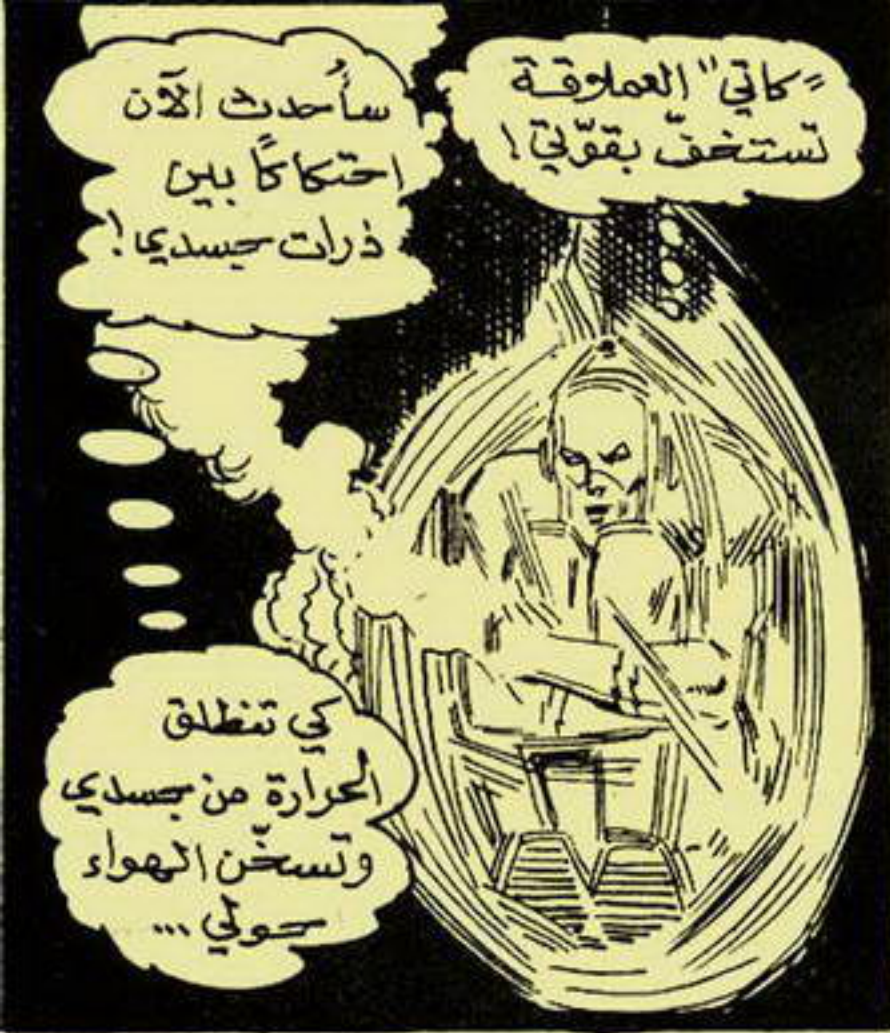 "كاتي" العملاقة
تستخفّ بقوّتي!
سأُحدث الآن
احتكاكًا بين
ذرات جسدي!
كي تنطلق
الحرارة من جسدي
وتسخّن الهواء
حولي ...